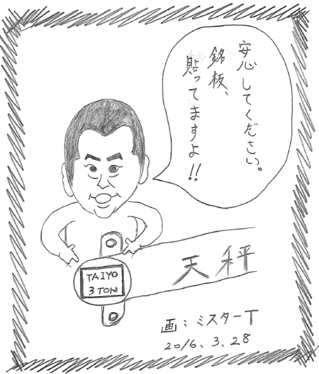 安心してください。
銘板、
貼ってますよ!!
天秤
TAIYO
3 TON
画：ミスターT
2016.3.28